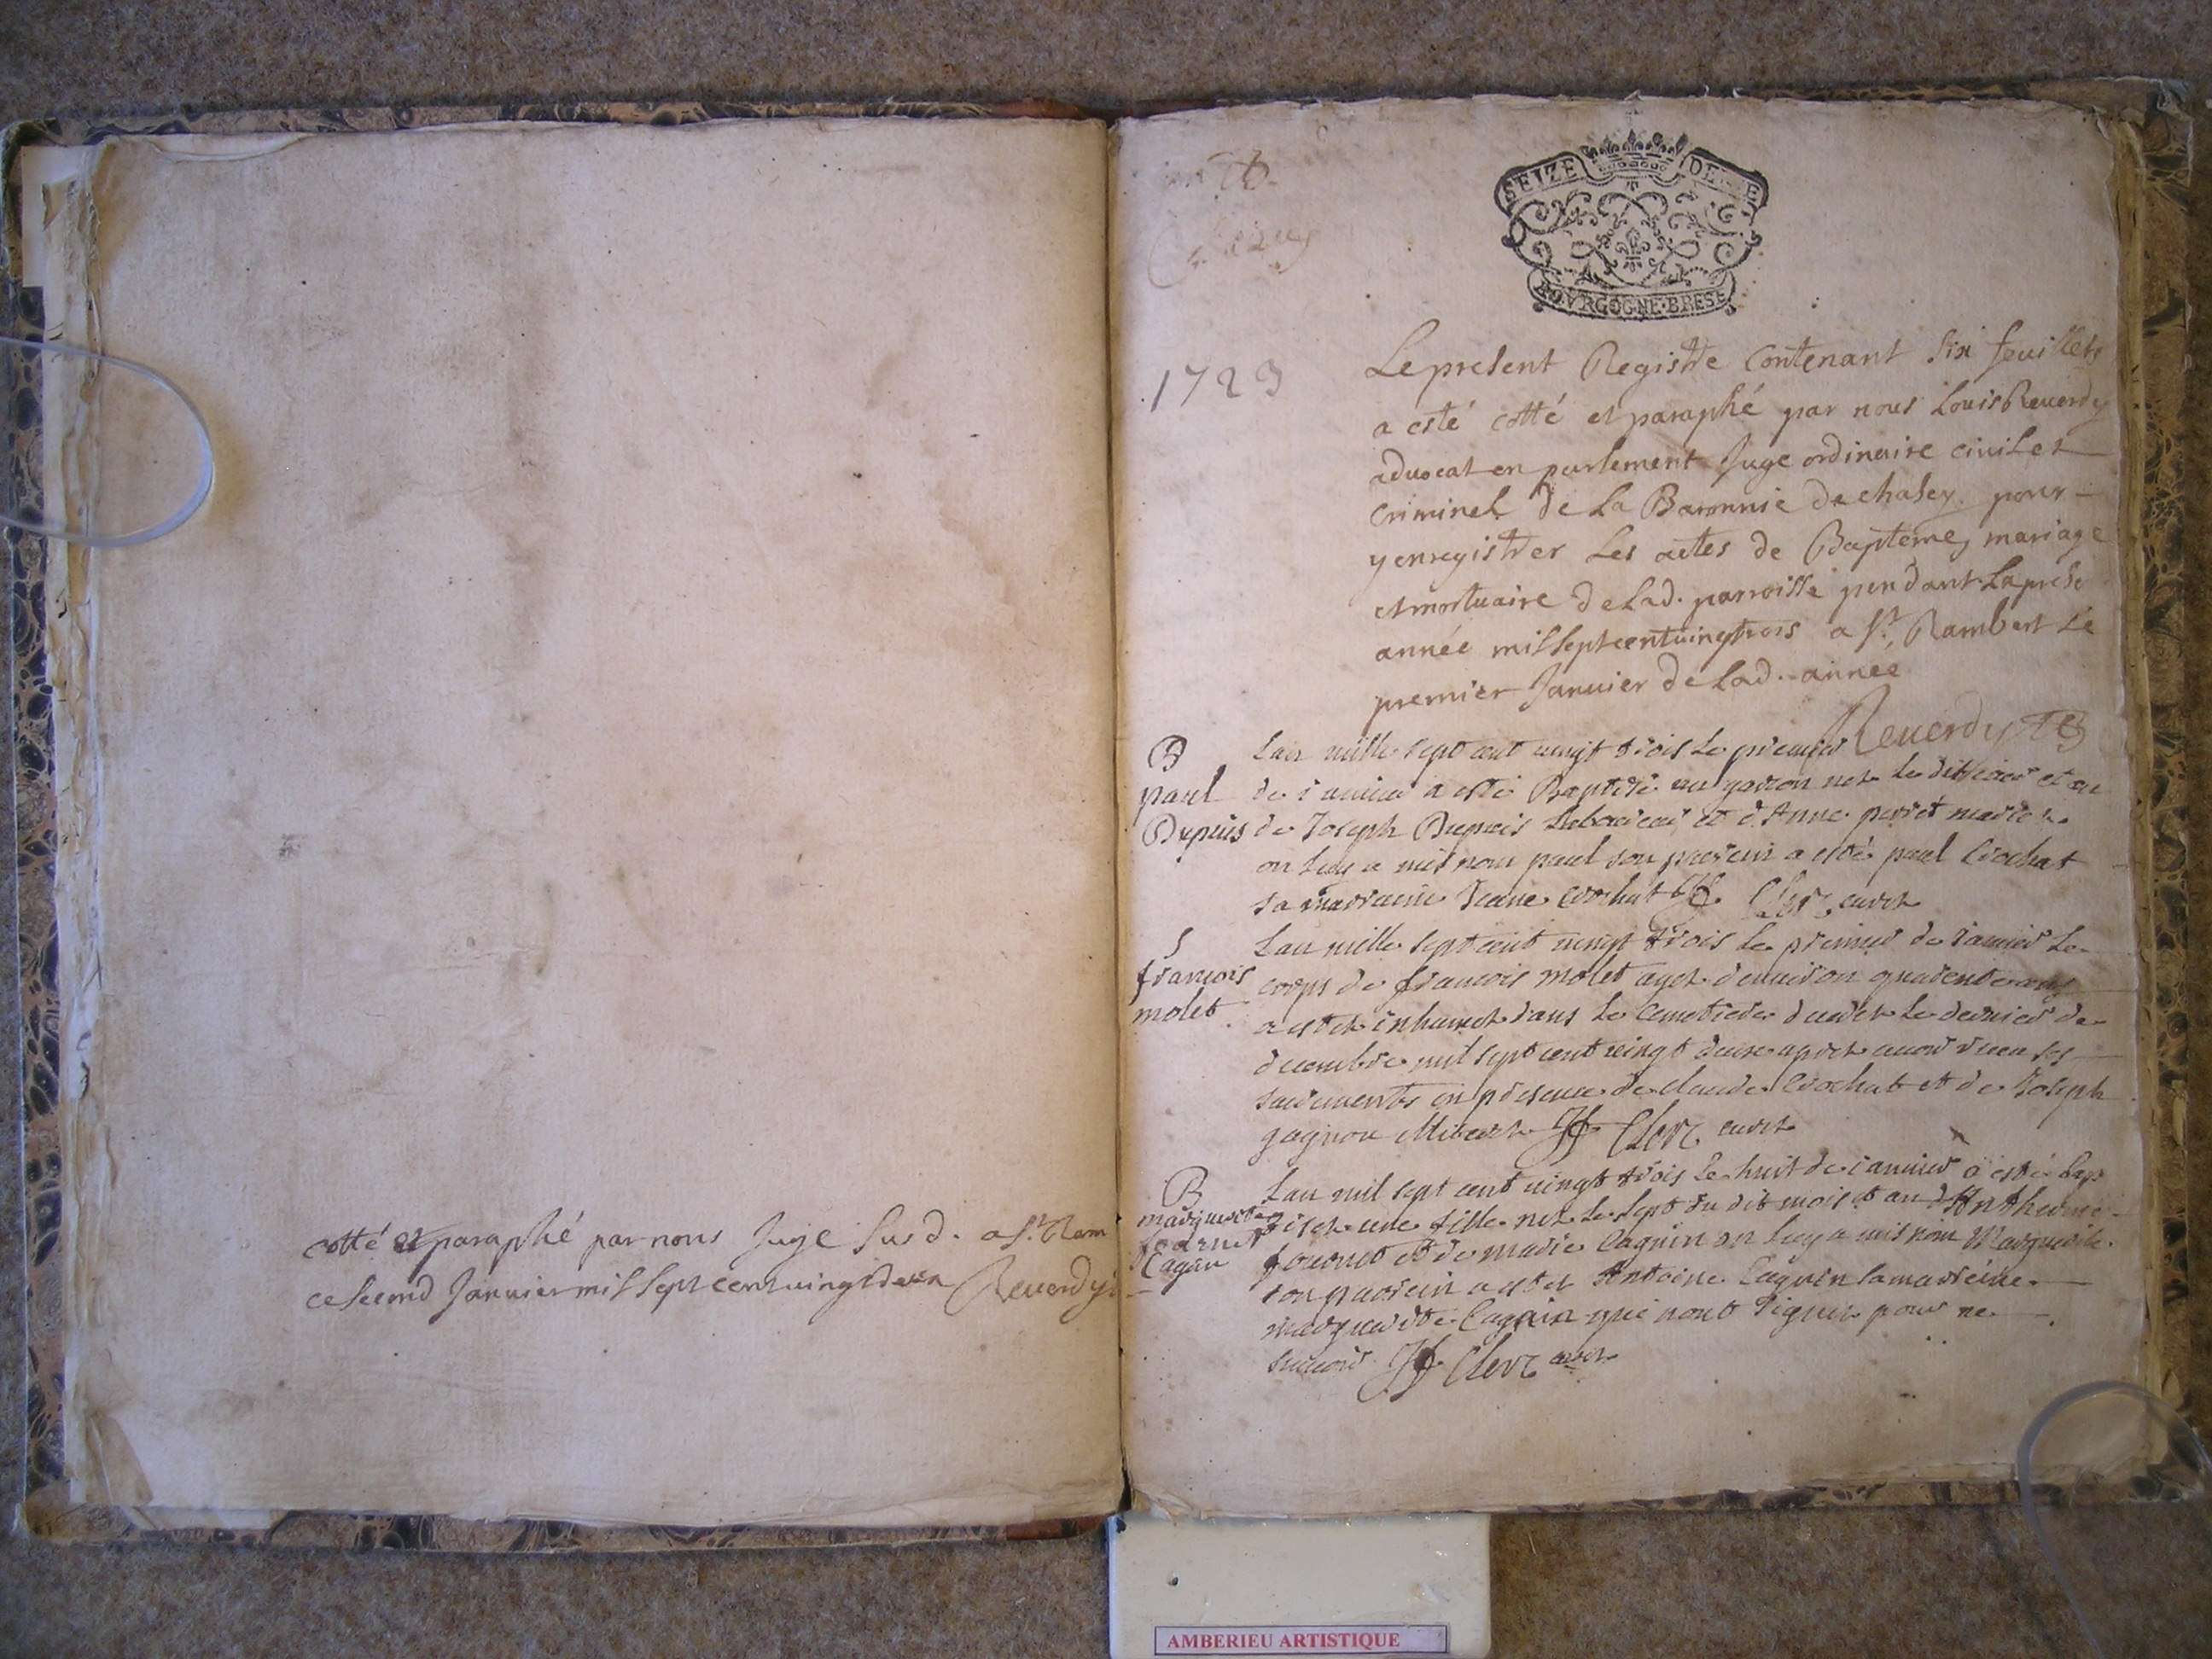 cotté et paraphé par nous Juge susd. a St. Ram
ce second Janvier mil sept cent vingt deux Reverdy
SEIZE DE
BOVRGOGNE·BRESE
1723
Le present Registre Contenant six feuillets
a esté cotté et paraphé par nous Louis Reverdy
advocat en parlement Juge ordinaire civil et
criminel de La Baronnie de chasey pour
y enregistrer Les actes de Baptemes mariage
et mortuaire de Lad. parroisse pendant La prese
année mil sept cent vingt trois a St. Rambert Le
premier Janvier de Lad. année
Reverdy
B
paul
Dupuis
Lan mille sept cent vingt trois le premier
de ianvier a esté Baptisé un garcon net le dit iour et an
de Joseph Dupuis laboureur et d'Anne perret mariez
on luy a mis nom paul son parrein a esté paul Crochat
sa marraine Crochat Clerc curet
S
francois
molet
Lan mille sept cent vingt trois le premier de ianvier le
corps de francois molet aget denviron quarente ans
a estet inhumet dans le cemetiere le dernier de
decembre mil sept cent vingt deux apret avoir receu ses
sacrements en presence de claude Crochat et de Joseph
gagnon Clerc curet
B
marguerite
fournet
Cagnin
Lan mil sept cent vingt trois le huit de ianvier a esté bap
tiset une fille net le sept du dit mois et an d'Anthelme
fournet et de marie Cagnin on luy a mis nom Marguerite
son parrein a estet Antoine Cagnin sa marreine
marguerite Cagnin qui nont signet pour ne
scavoir Clerc curet
AMBERIEU ARTISTIQUE